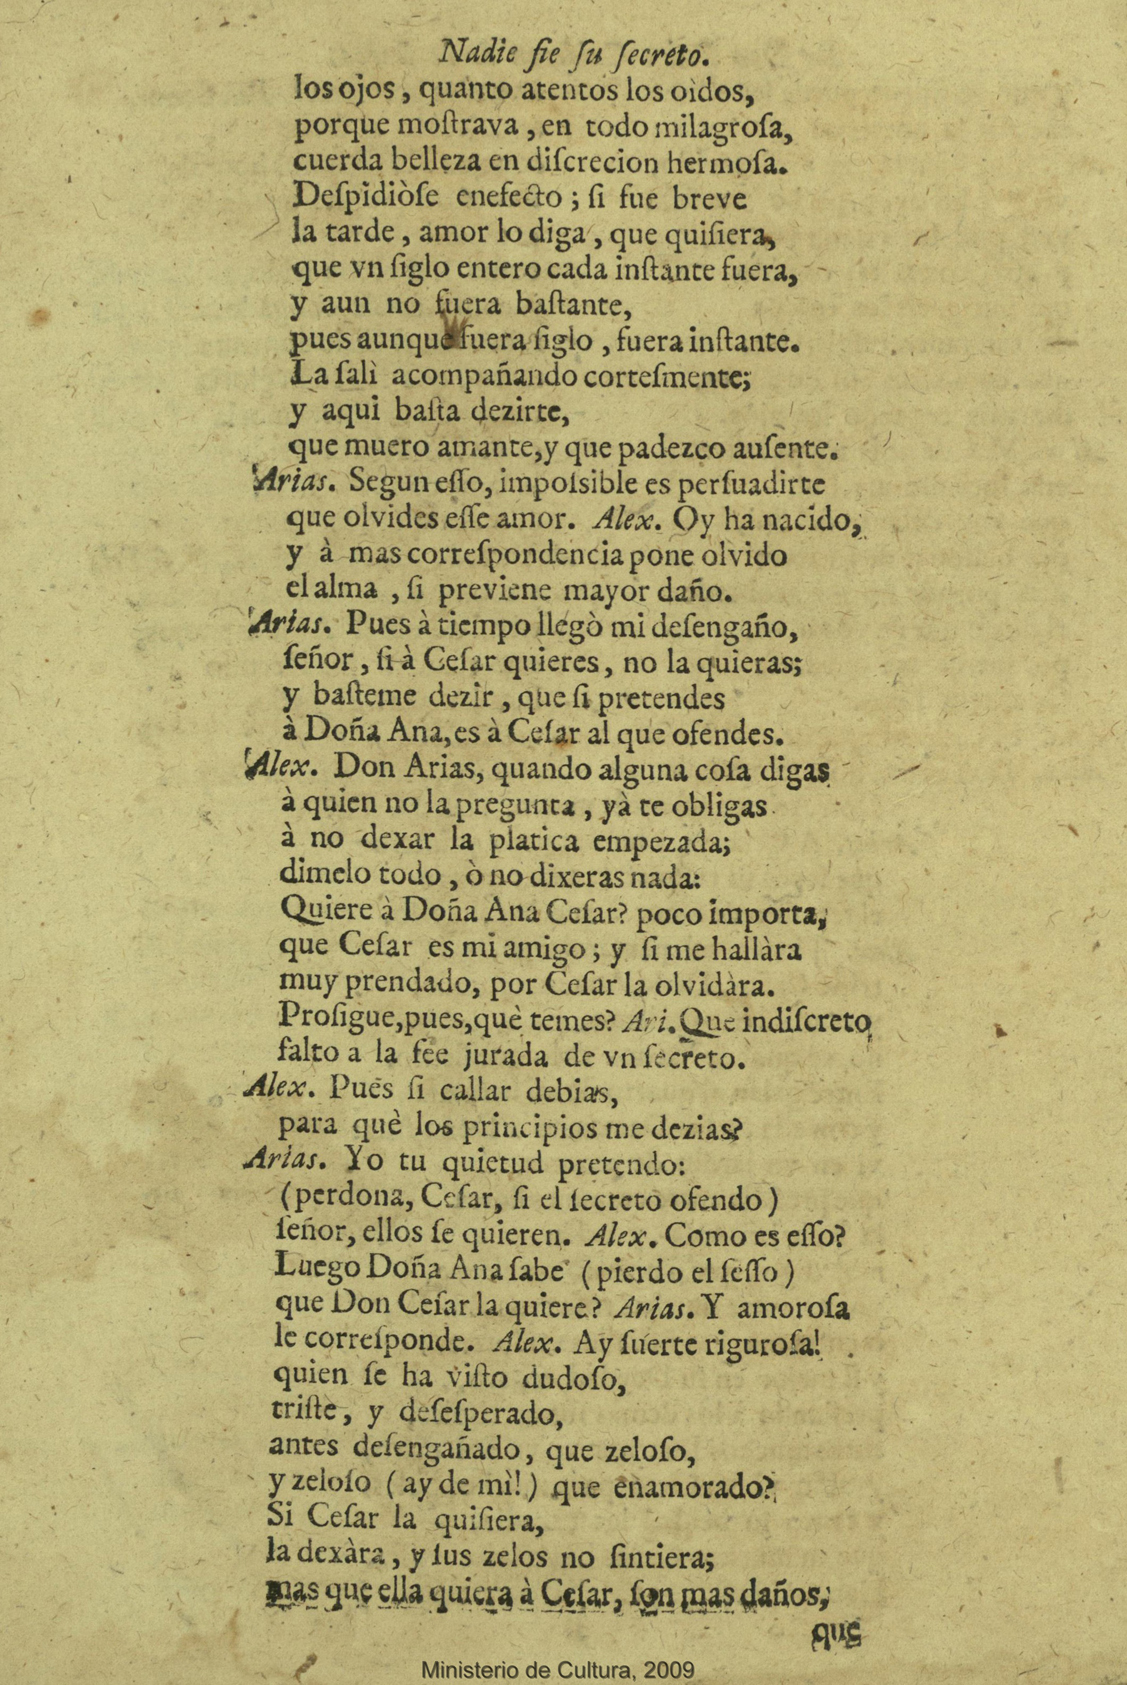 Nadie fie ſu ſecreto.
los ojos, quanto atentos los oìdos,
porque moſtrava, en todo milagroſa,
cuerda belleza en diſcrecion hermoſa.
Deſpidiòſe enefecto; ſi fue breve
la tarde, amor lo diga, que quiſiera,
que vn ſiglo entero cada inſtante fuera,
y aun no fuera baſtante,
pues aunque fuera ſiglo, fuera inſtante.
La ſalì acompañando corteſmente;
y aqui baſta dezirte,
que muero amante, y que padezco auſente.
Arias. Segun eſſo, impoſsible es perſuadirte
que olvides eſſe amor. Alex. Oy ha nacido,
y à mas correſpondencia pone olvido
el alma, ſi previene mayor daño.
Arias. Pues à tiempo llegò mi deſengaño,
ſeñor, ſi à Ceſar quieres, no la quieras;
y baſteme dezir, que ſi pretendes
à Doña Ana, es à Ceſar al que ofendes.
Alex. Don Arias, quando alguna coſa digas
à quien no la pregunta, yà te obligas
à no dexar la platica empezada;
dimelo todo, ò no dixeras nada:
Quiere à Doña Ana Ceſar? poco importa,
que Ceſar es mi amigo; y ſi me hallàra
muy prendado, por Ceſar la olvidàra.
Proſigue, pues, què temes? Ari. Que indiſcreto
falto a la fee jurada de vn ſecreto.
Alex. Pues ſi callar debias,
para què los principios me dezias?
Arias. Yo tu quietud pretendo:
(perdona, Ceſar, ſi el ſecreto ofendo)
ſeñor, ellos ſe quieren. Alex. Como es eſſo?
Luego Doña Ana ſabe (pierdo el ſeſſo)
que Don Ceſar la quiere? Arias. Y amoroſa
le correſponde. Alex. Ay ſuerte riguroſa!
quien ſe ha viſto dudoſo,
triſte, y deſeſperado,
antes deſengañado, que zeloſo,
y zeloſo (ay de mì!) que enamorado?
Si Ceſar la quiſiera,
la dexàra, y ſus zelos no ſintiera;
mas que ella quiera à Ceſar, ſon mas daños,
que
Ministerio de Cultura, 2009